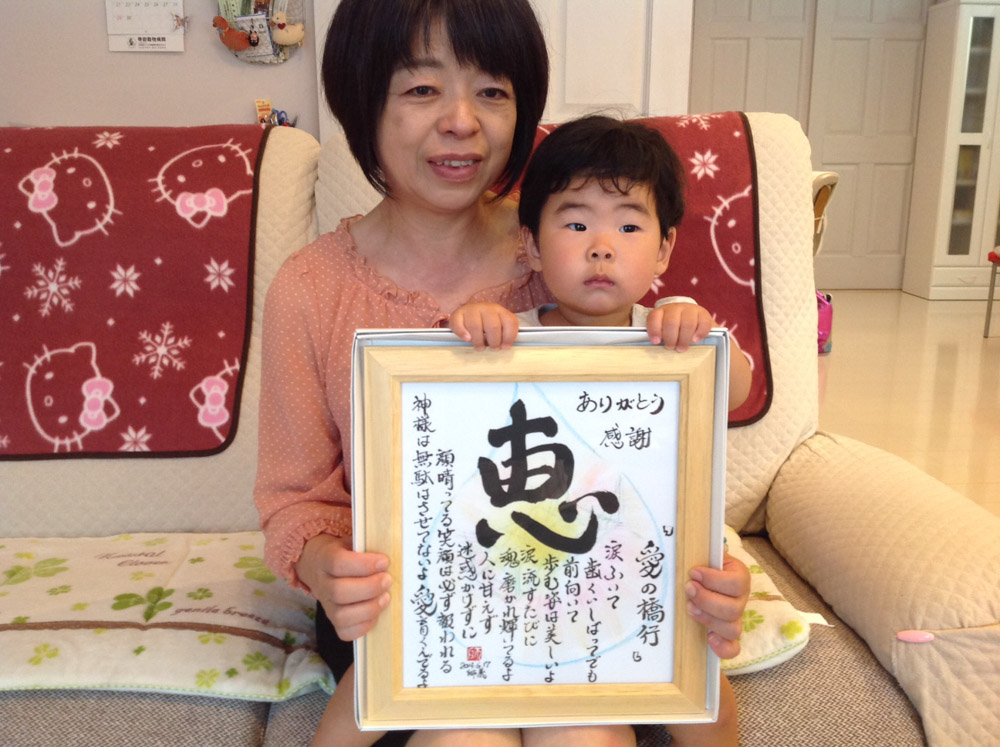 ありがとう
感謝
恵
『愛の橋行』
涙ふいて
歯くいしばってでも
前向いて
歩む姿は美しいよ
涙流すたびに
魂磨かれ輝ってるよ
人に甘えず
迷惑かけずに
顔晴ってる笑顔は必ず報われる
神様は無駄はさせてないよ